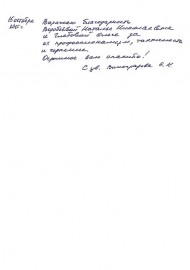 Выражаю благодарность
Воробьёвой Наталье Николаевне
и Глебовой Ольге за
их профессионализм, тактичность
и терпение.
Огромное вам спасибо!
С ув. Виноградова О. К